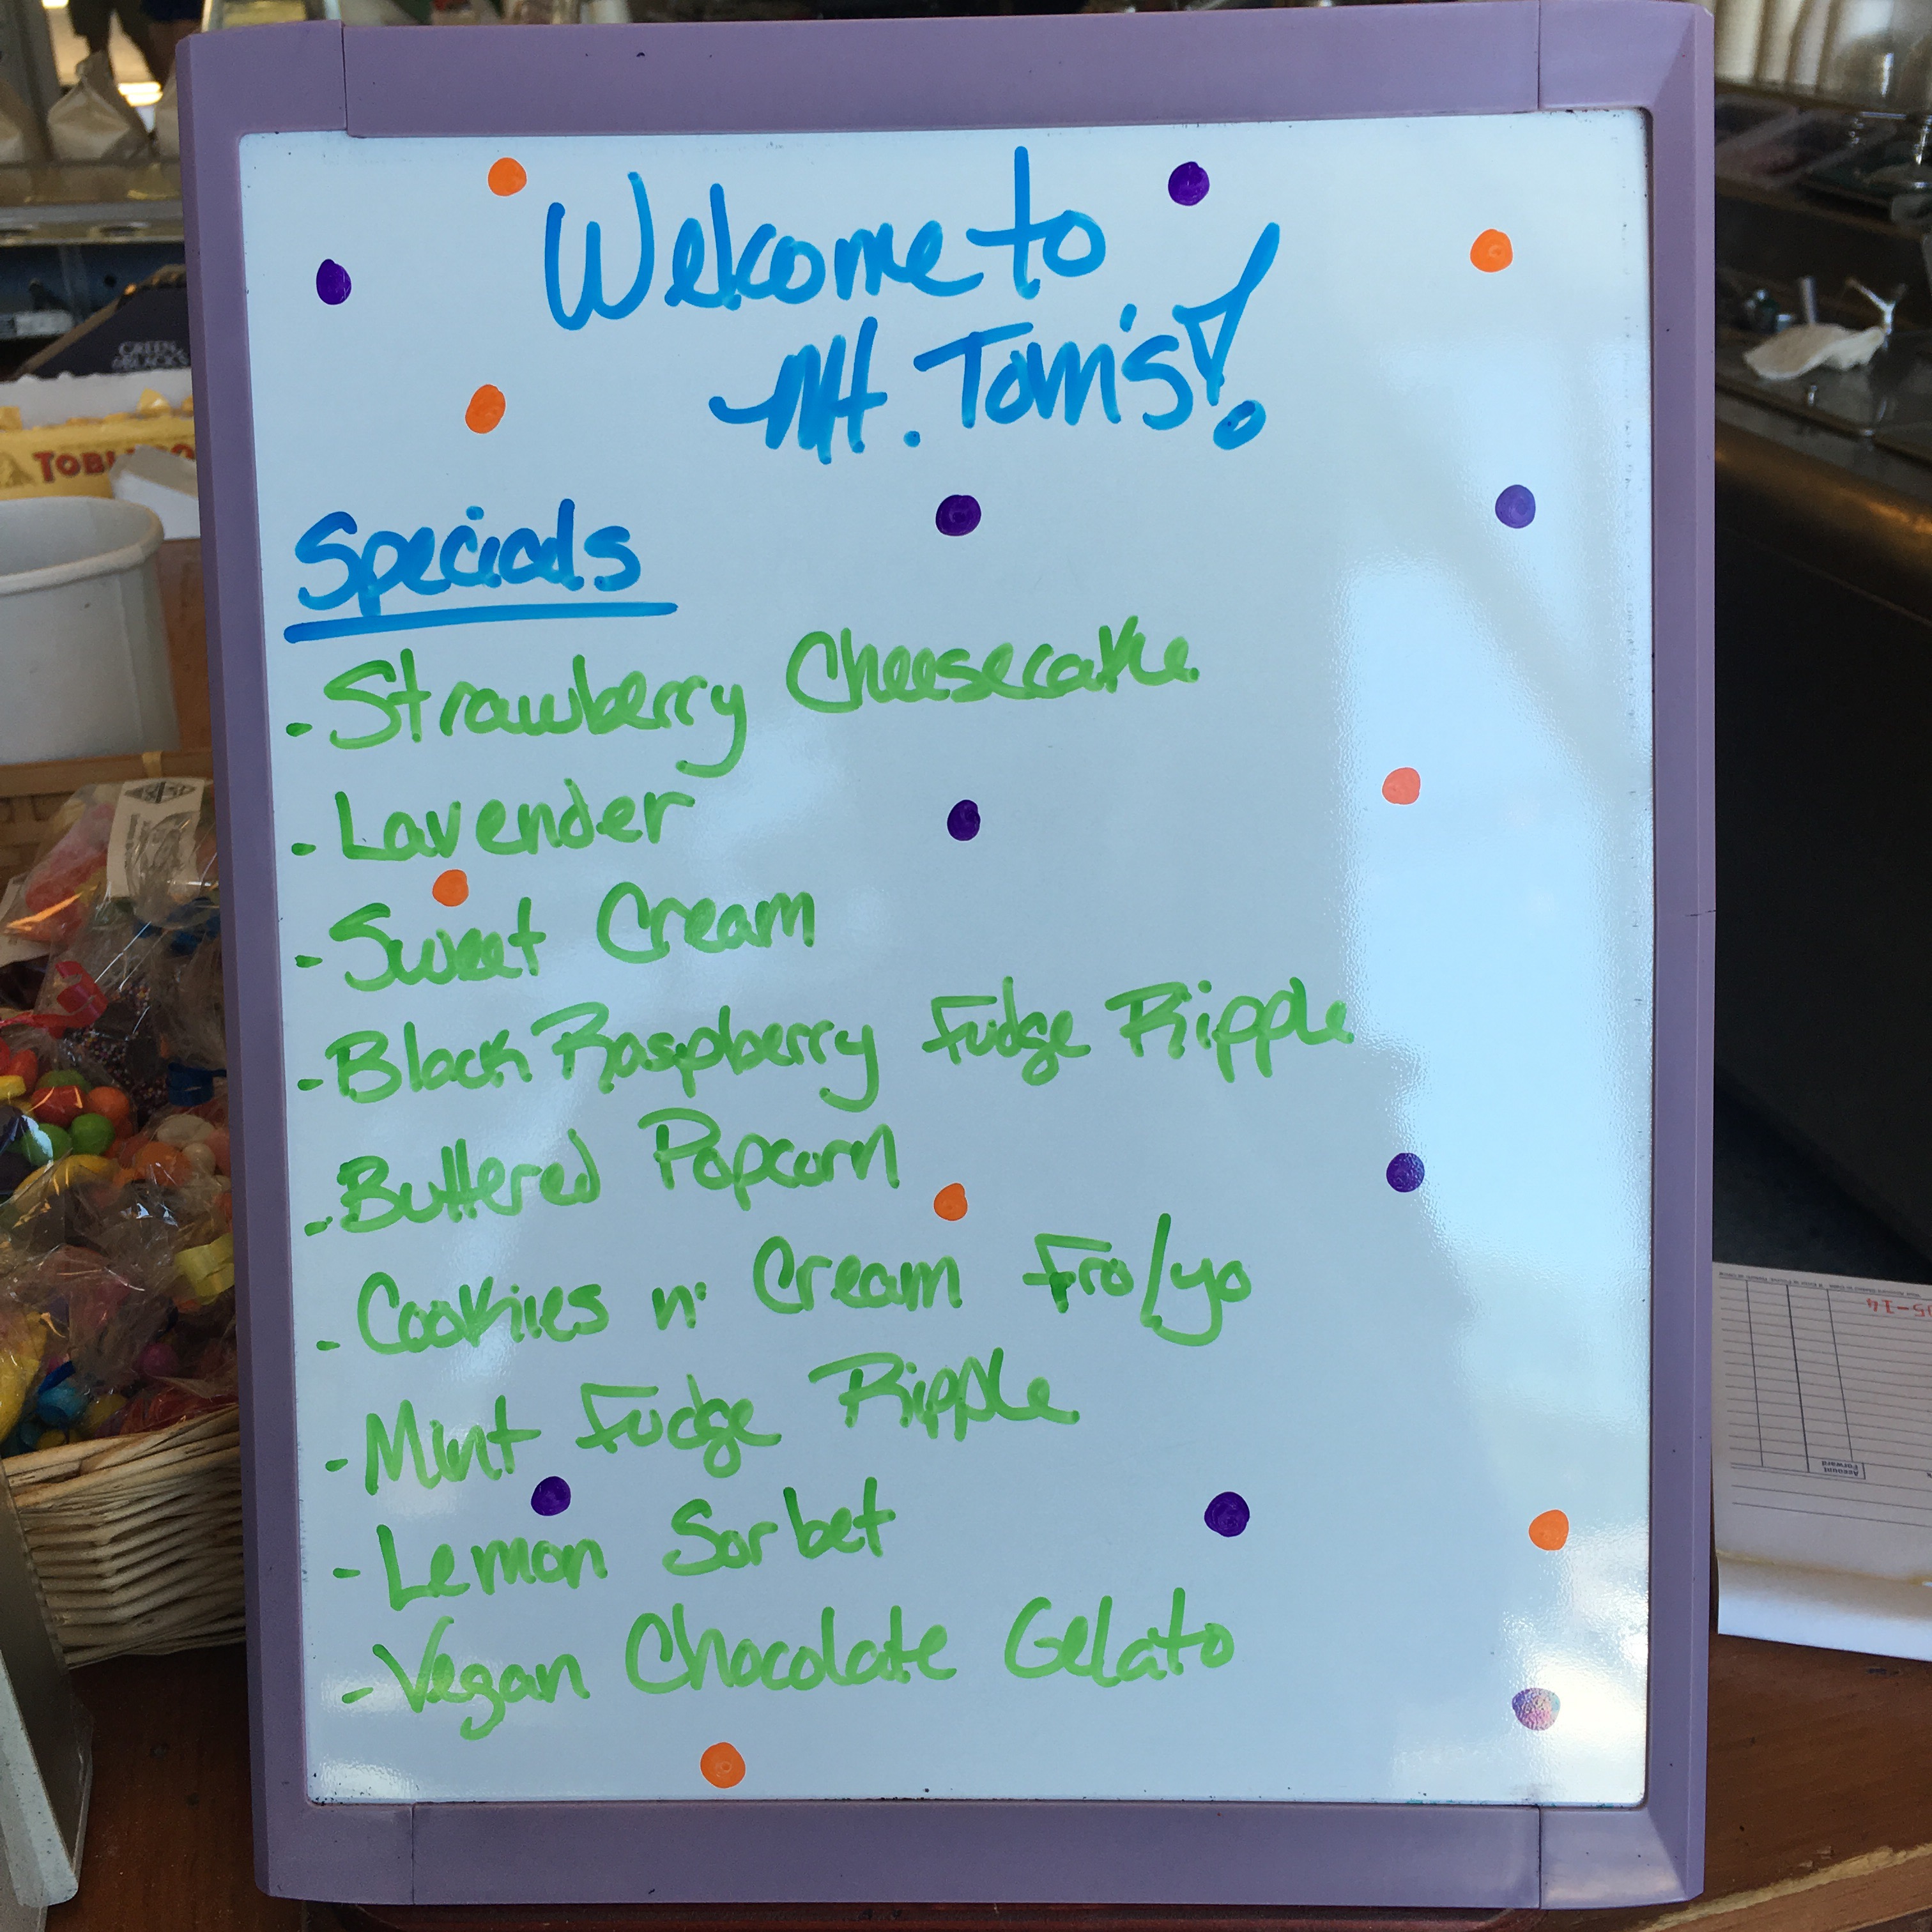 Welcome to
Mt. Tom's!
Specials
- Strawberry Cheesecake
- Lavender
- Sweet Cream
- Black Raspberry Fudge Ripple
- Buttered Popcorn
- Cookies n' Cream Fro/yo
- Mint Fudge Ripple
- Lemon Sorbet
- Vegan Chocolate Gelato
GREEN
&BLACK'S
TOBL
05-14
Account
Forward